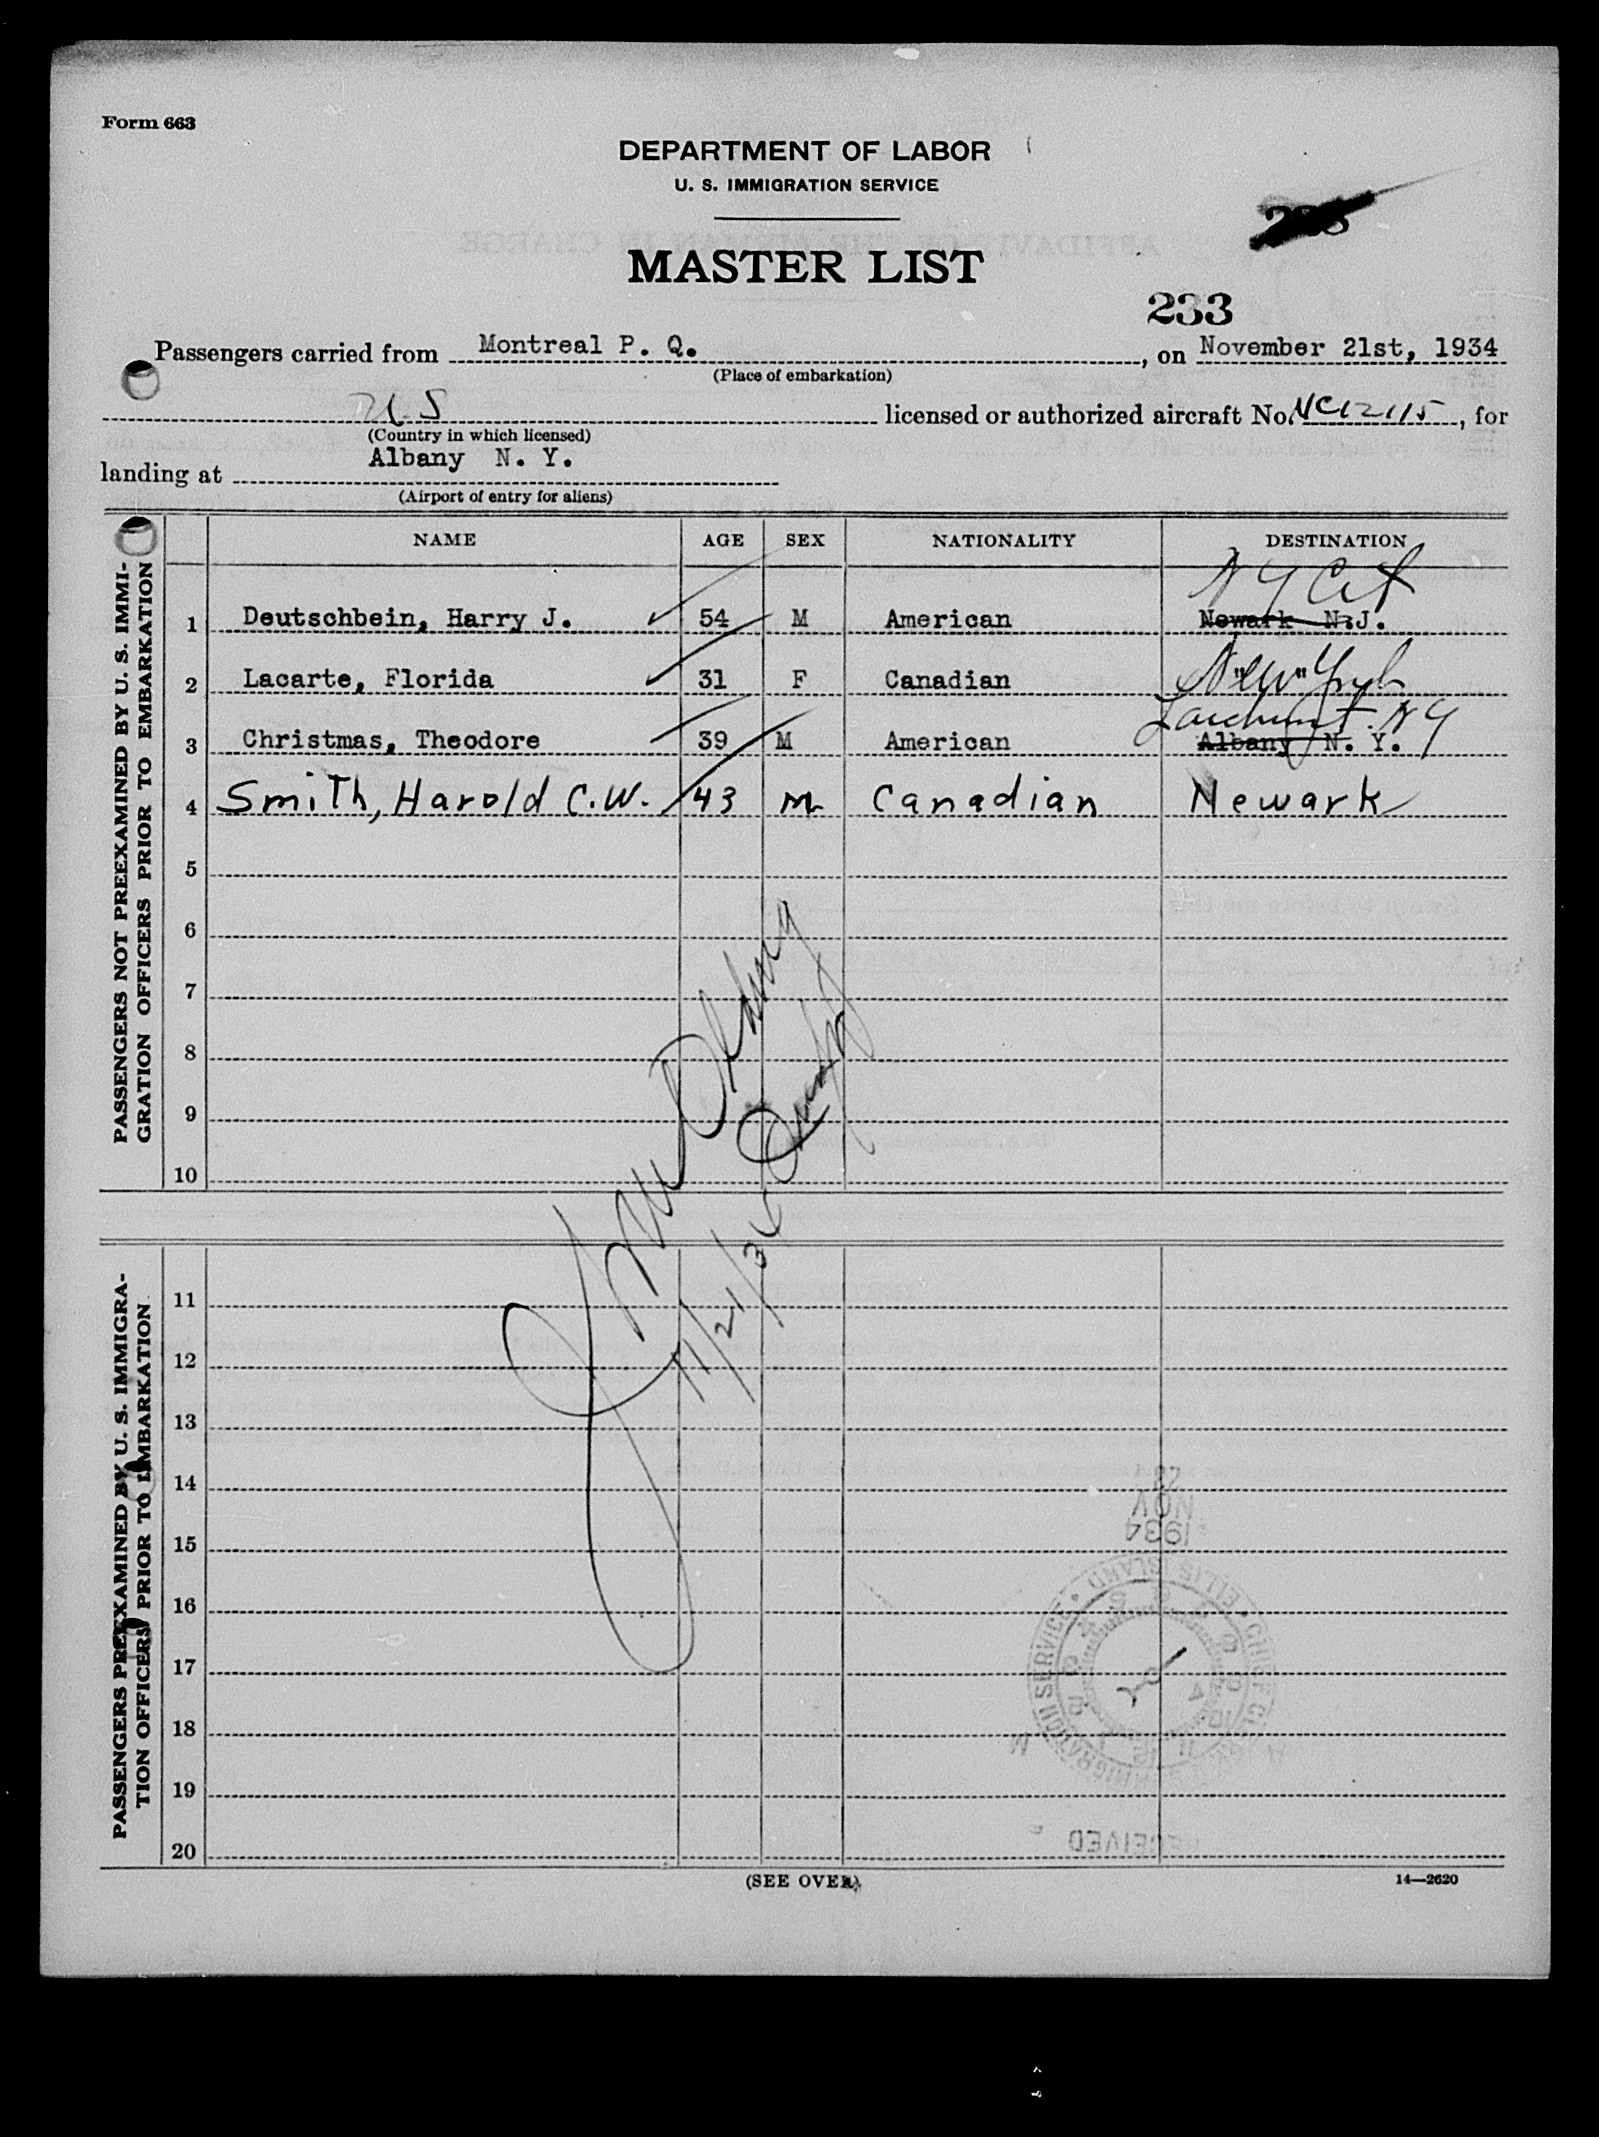 Form 663
DEPARTMENT OF LABOR
U. S. IMMIGRATION SERVICE
MASTER LIST
233
Passengers carried from Montreal P. Q., on November 21st, 1934
(Place of embarkation)
U S licensed or authorized aircraft No. NC12115, for
(Country in which licensed)
landing at Albany N. Y.
(Airport of entry for aliens)
NAME AGE SEX NATIONALITY DESTINATION
N Y City
1 Deutschbein, Harry J. 54 M American Newark N.J.
2 Lacarte, Florida 31 F Canadian " " New York
Larchmont. N Y
3 Christmas, Theodore 39 M American Albany N. Y.
4 Smith, Harold C.W. 43 M Canadian Newark
5
6
7
8
9
10
PASSENGERS NOT PREEXAMINED BY U. S. IMMI-
GRATION OFFICERS PRIOR TO EMBARKATION
11/21/34
11
12
13
14
15
16
17
18
19
20
PASSENGERS PREEXAMINED BY U. S. IMMIGRA-
TION OFFICERS PRIOR TO EMBARKATION
NOV
1934
ELLIS ISLAND
IMMIGRATION SERVICE
RECEIVED
(SEE OVER)
14—2620